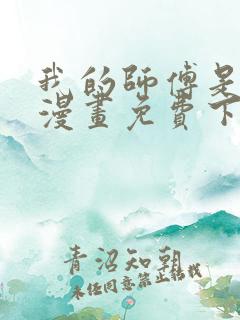 我的師傅是
漫畫免費下
青沼知朝
未经同意禁止转载